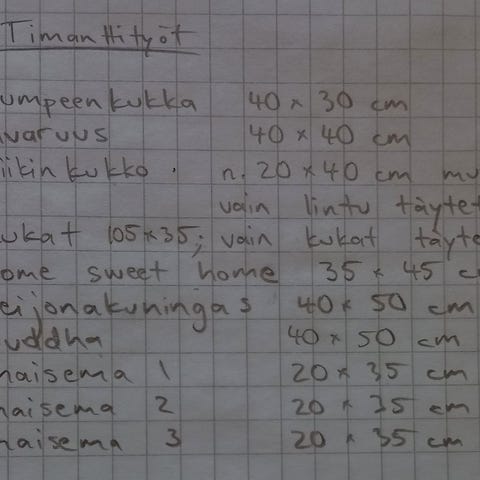 Timanttityöt
umpeenkukka 40 x 30 cm
varuus 40 x 40 cm
iikinkukko. n. 20 x 40 cm mu
vain lintu täytet
ukat 105x35; vain kukat täyte
ome sweet home 35 x 45 c
eijonakuningas 40 x 50 cm
uddha 40 x 50 cm
maisema 1 20 x 35 cm
maisema 2 20 x 35 cm
maisema 3 20 x 35 cm